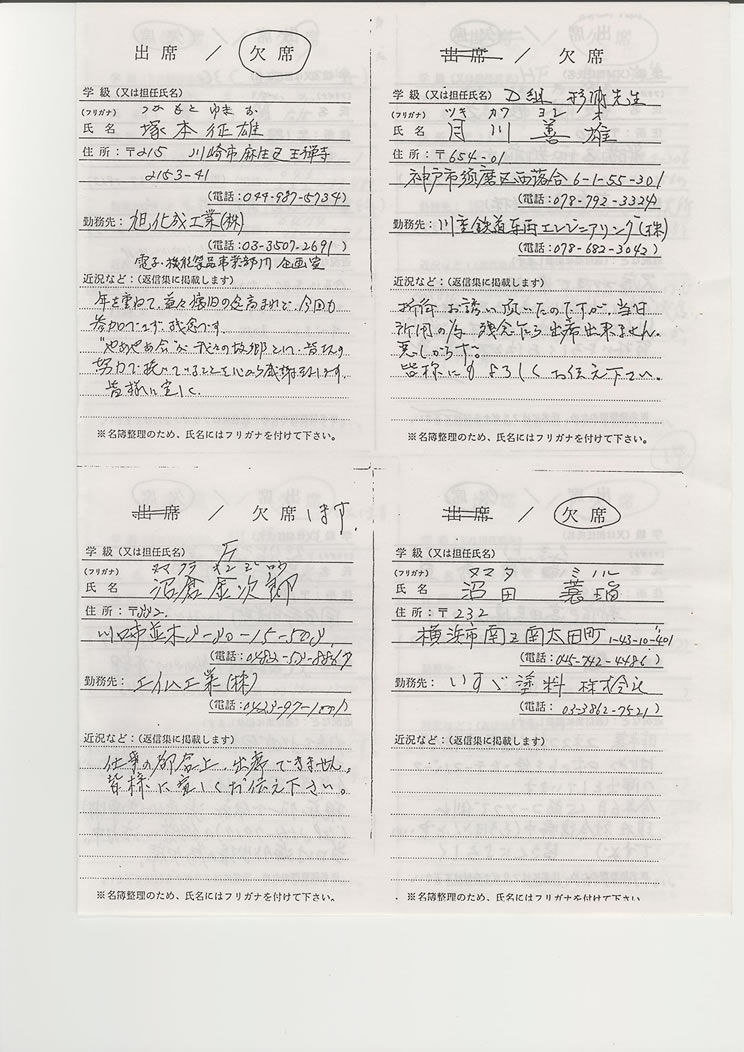 出席 / 欠席
学級(又は担任氏名)
(フリガナ) つかもと ゆきお
氏名 塚本征雄
住所:〒215 川崎市麻生区王禅寺
2153-41
(電話:044-987-5734)
勤務先:旭化成工業(株)
(電話:03-3507-2691)
電子・機能製品事業部門 企画室
近況など:(返信集に掲載します)
年を重ねて、益々懐旧の念高まれど、今回も
参加できず、残念です。
努力で続いていることを心から感謝
皆様に宜しく。
※名簿整理のため、氏名にはフリガナを付けて下さい。
出席 / 欠席
学級(又は担任氏名) D組 先生
(フリガナ) ツキ カワ ヨシ オ
氏名 月川善雄
住所:〒654-01
神戸市須磨区西落合6-1-55-301
(電話:078-792-3324)
勤務先:川重鉄道車両エンジニアリング(株)
(電話:078-682-3042)
近況など:(返信集に掲載します)
折角お誘い頂いたのですが、当日
所用の為 残念乍ら出席出来ません。
悪しからず。
皆様にもよろしくお伝え下さい。
※名簿整理のため、氏名にはフリガナを付けて下さい。
出席 / 欠席します。
学級(又は担任氏名)
(フリガナ)
氏名 沼倉金次郎
住所:〒
川口市並木
(電話:
勤務先: 工業(株)
(電話:
近況など:(返信集に掲載します)
仕事の都合上、出席できません。
皆様に宜しくお伝え下さい。
※名簿整理のため、氏名にはフリガナを付けて下さい。
出席 / 欠席
学級(又は担任氏名)
(フリガナ) ヌマタ ミノル
氏名 沼田
住所:〒232
横浜市南区南太田町1-43-10-401
(電話:045-742-4486)
勤務先:いすゞ塗料 株式会社
(電話: 03-3862-7521)
近況など:(返信集に掲載します)
※名簿整理のため、氏名にはフリガナを付けて下さい。